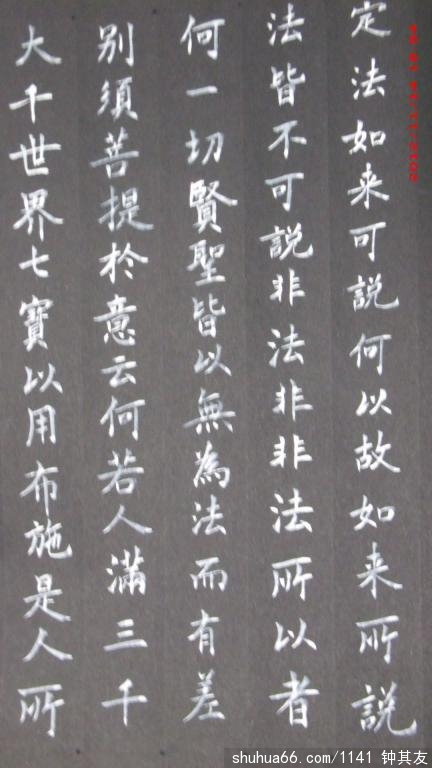 定法如来可説何以故如来所説
法皆不可説非法非非法所以者
何一切賢聖皆以無為法而有差
別須菩提於意云何若人滿三千
大千世界七寶以用布施是人所
shuhua66.com/1141 钟其友